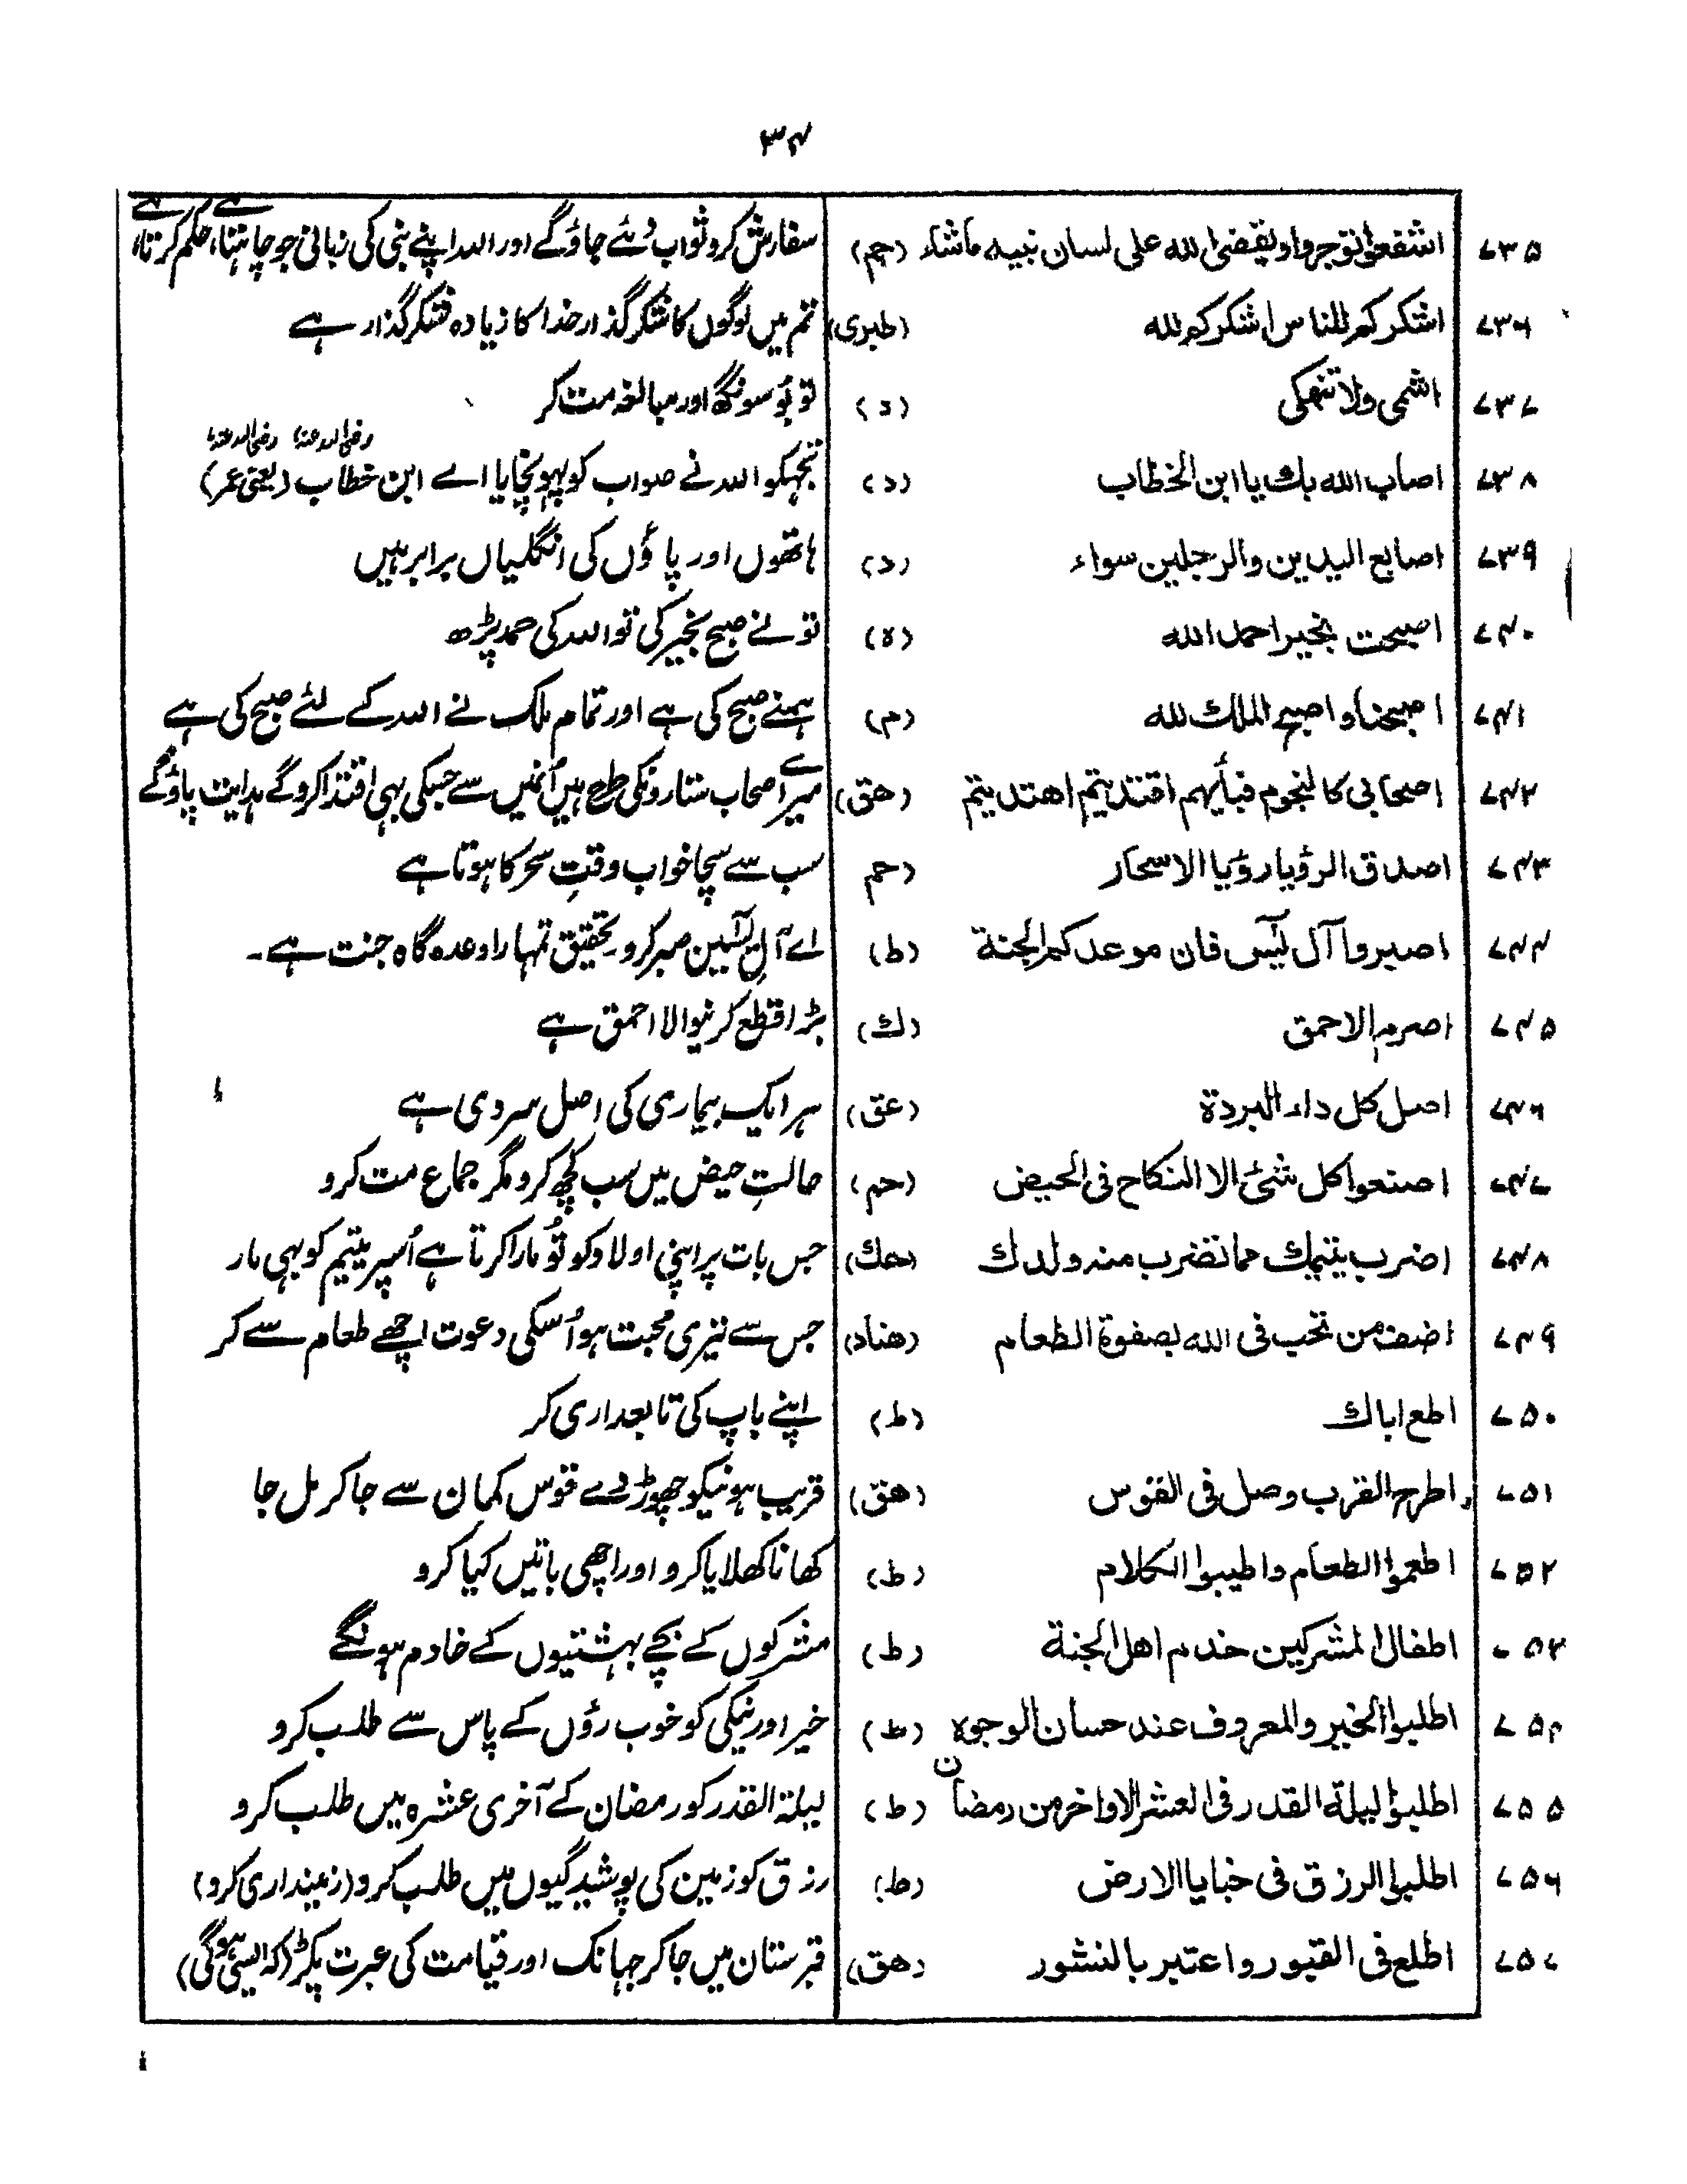 ۳۴
۷۳۵ اشفعوا تؤجروا ويقضی الله علی لسان نبيه ماشاء (حم) سفارش کرو ثواب دئے جاؤگے اور اللہ اپنے نبی کی زبانی جو چاہتا ہے حکم کرتا ہے
۷۳۶ اشكركم للناس اشكركم لله (طبری) تم میں لوگوں کا شکر گذار خدا کا زیادہ شکر گذار ہے
۷۳۷ اشمی ولا تنهكی (د) تو بُو سونگھ اور مبالغہ مت کر
۷۳۸ اصاب الله بك يا ابن الخطاب (د) تجہکو اللہ نے صواب کو پہونچایا اے ابن خطاب رضی اللہ عنہ (یعنی عمر رضی اللہ عنہ)
۷۳۹ اصابع اليدين والرجلين سواء (د) ہاتھوں اور پاؤں کی انگلیاں برابر ہیں
۷۴۰ اصبحت بخير احمد الله (ه) تو نے صبح بخیر کی تو اللہ کی حمد پڑھ
۷۴۱ اصبحنا واصبح الملك لله (م) ہمنے صبح کی ہے اور تمام ملک نے اللہ کے لئے صبح کی ہے
۷۴۲ اصحابی كالنجوم فبأيهم اقتديتم اهتديتم (هق) میرے اصحاب ستارونکی طرح ہیں اُنمیں سے جسکی بہی اقتدا کروگے ہدایت پاؤگے
۷۴۳ اصدق الرؤيا رؤيا الاسحار (حم سب سے سچا خواب وقتِ سحر کا ہوتا ہے
۷۴۴ اصبروا آل يٰسٓ فان موعدكم الجنة (ط) اے آلِ یٰسٓین صبر کرو تحقیق تمہارا وعدہ گاہ جنت ہے۔
۷۴۵ اصرم الاحمق (ك) بڑا قطع کرنیوالا احمق ہے
۷۴۶ اصل كل داء البردة (عق) ہر ایک بیماری کی اصل سردی ہے
۷۴۷ اصنعوا كل شئ الا النكاح فی الحيض (حم) حالتِ حیض میں سب کچھ کرو مگر جماع مت کرو
۷۴۸ اضرب يتيمك مما تضرب منه ولدك (حك) جس بات پر اپنی اولاد کو تُو مارا کرتا ہے اُسپر یتیم کو بہی مار
۷۴۹ اضف من تحب فی الله بصفوة الطعام (هناد) جس سے تیری محبت ہو اُسکی دعوت اچھے طعام سے کر
۷۵۰ اطع اباك (ط) اپنے باپ کی تابعداری کر
۷۵۱ اطرح القرب وصل فی القوس (هق) قریب ہونیکو چھوڑ دے قوس کمان سے جا کر مل جا
۷۵۲ اطعموا الطعام واطيبوا الكلام (ط) کھانا کھلایا کرو اور اچھی باتیں کیا کرو
۷۵۳ اطفال المشركين خدم اهل الجنة (ط) مشرکوں کے بچے بہشتیوں کے خادم ہونگے
۷۵۴ اطلبوا الخير والمعروف عند حسان الوجوه (ط) خیر اور نیکی کو خوب رؤں کے پاس سے طلب کرو
۷۵۵ اطلبوا ليلة القدر فی العشر الاواخر من رمضان (ط) لیلۃ القدر کو رمضان کے آخری عشرہ میں طلب کرو
۷۵۶ اطلبوا الرزق فی خبايا الارض (ط) رزق کو زمین کی پوشیدگیوں میں طلب کرو (زمینداری کرو)
۷۵۷ اطلع فی القبور واعتبر بالنشور (هق) قبرستان میں جا کر جہانک اور قیامت کی عبرت پکڑ (کہ ایسی ہوگی)